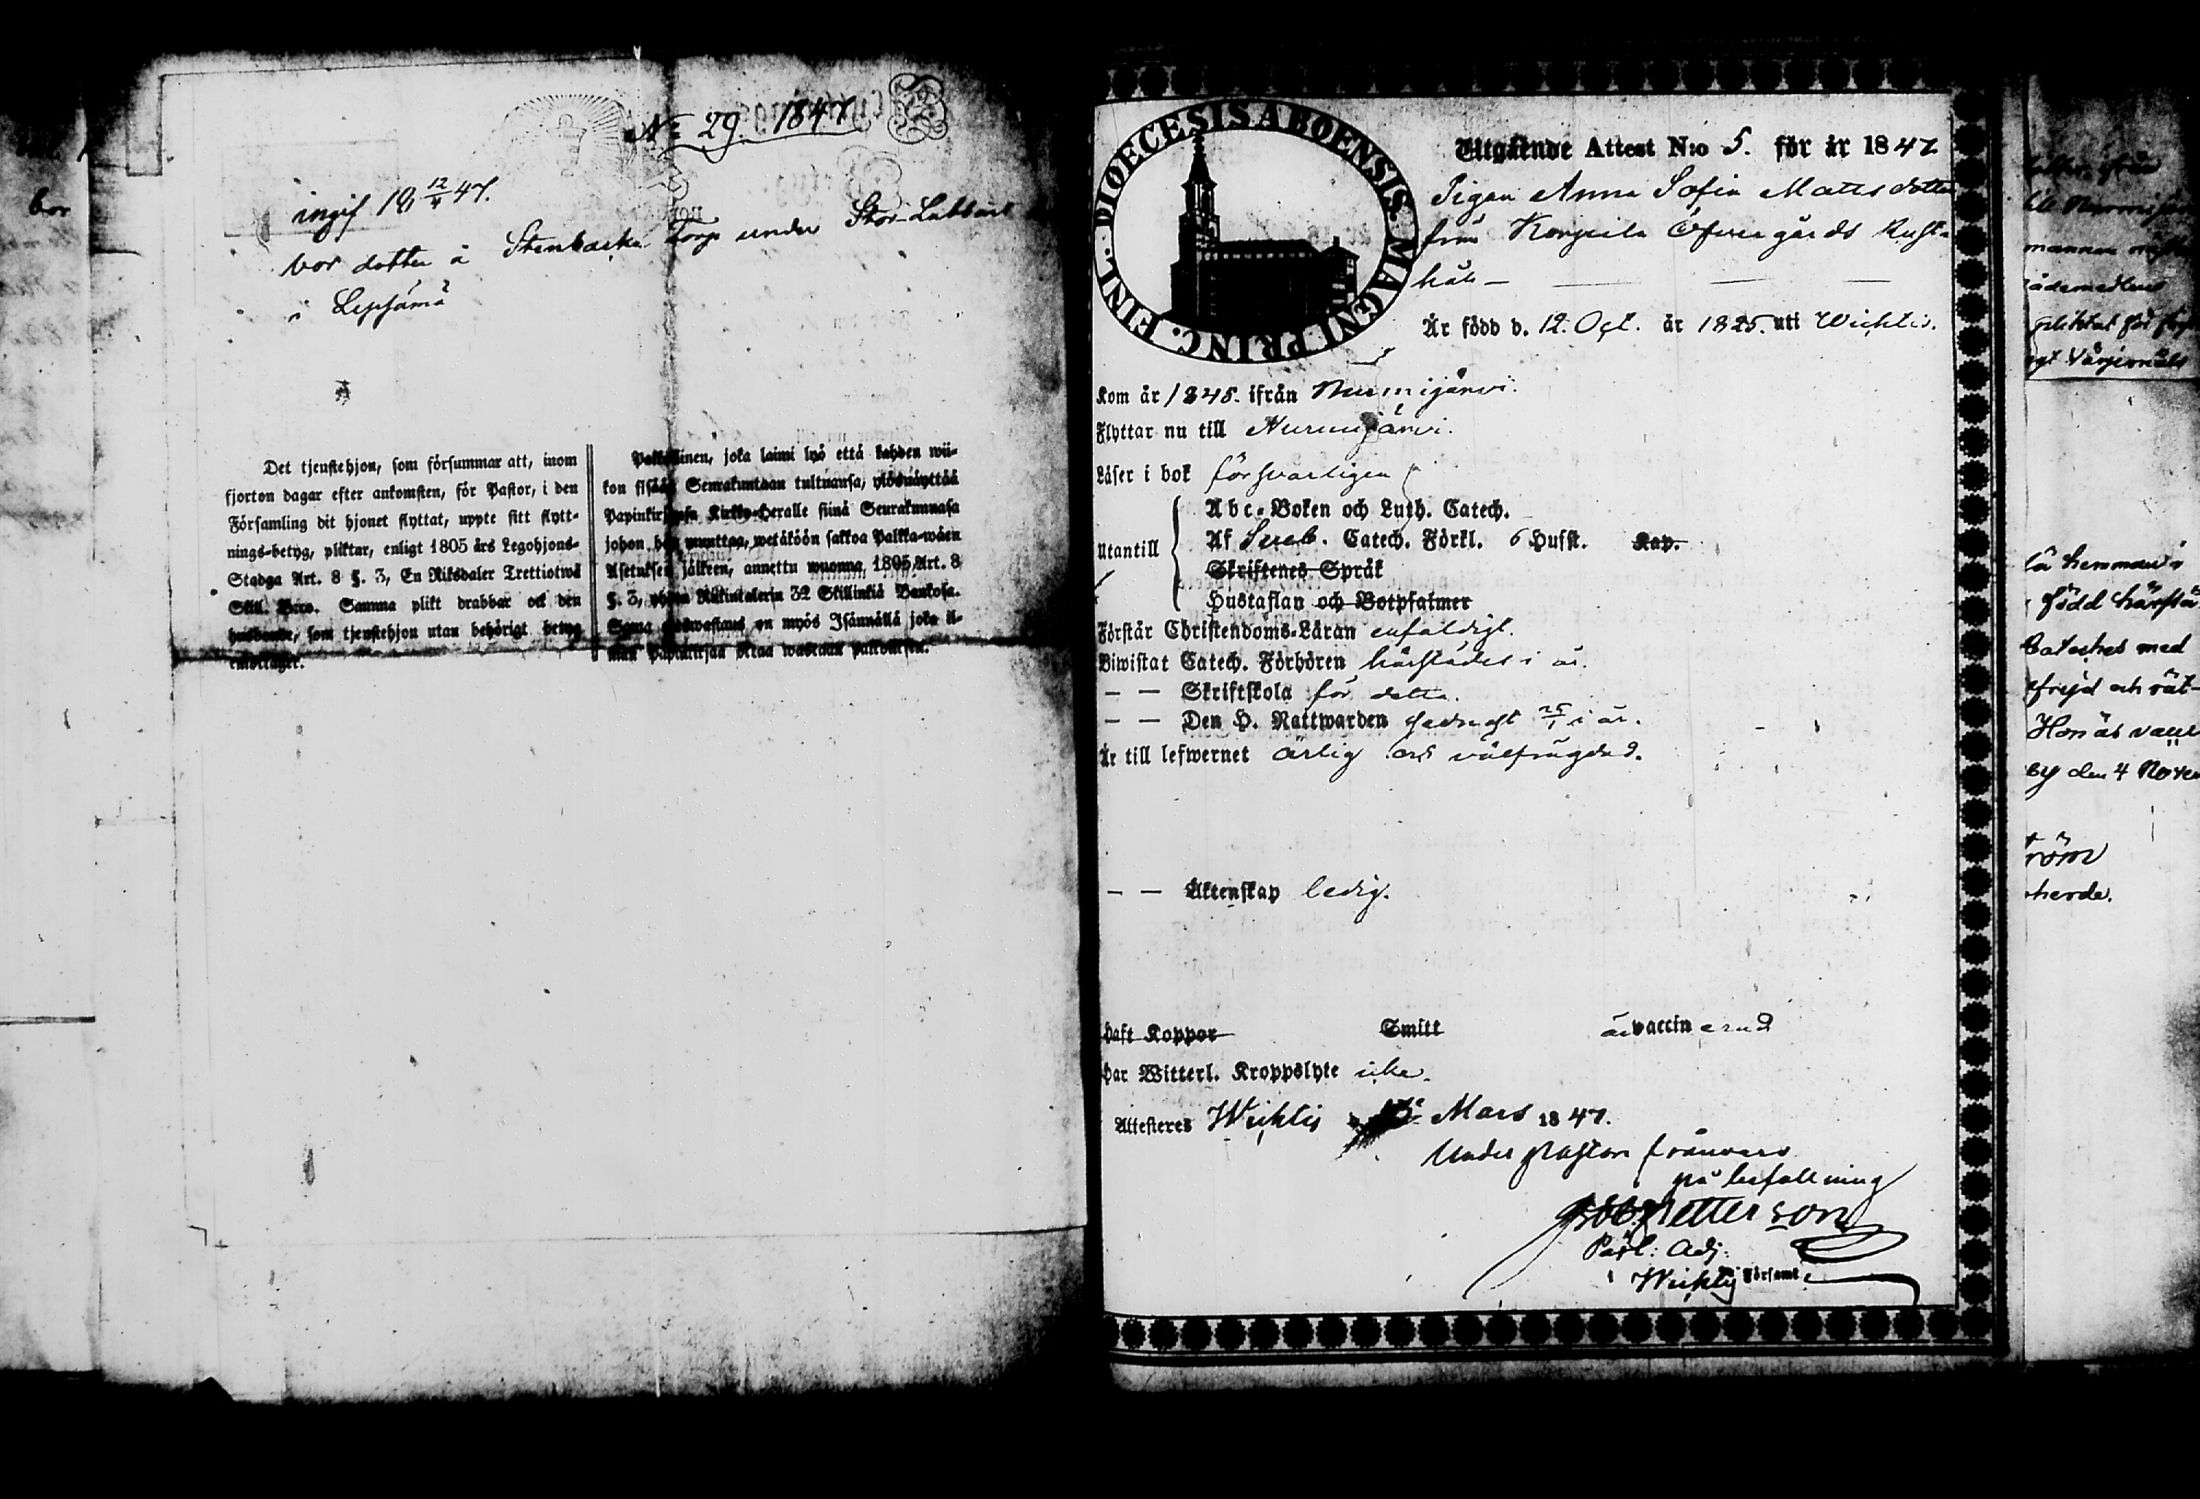 bor
No 29. 1847
ingif 18 12/4 47.
bor dotter å Stenbacka Torp under Stor-Labbais
i Lepsämä
Det tjenstehjon, som försummar att, inom
fjorton dagar efter ankomsten, för Pastor, i den
Församling dit hjonet flyttat, uppte sitt flytt-
nings-betyg, pliktar, enligt 1805 års Legohjons-
Stadga Art. 8 §. 3, En Riksdaler Trettiotwå
Skill. Bco. Samma plikt drabbar ock den
husbonde, som tjenstehjon utan behörigt betyg
emottager.
Palkollinen, joka laimi lyö että kahden wii-
kon sisään Seurakuntaan tultuansa, ylösnäyttää
Papinkirjansa Kirkko-Heralle siinä Seurakunnasa
johon hän muuttaa, wetäköön sakkoa Palkka-wäen
Asetuksen jälkeen, annettu wuonna 1805 Art. 8
§. 3, yhden Riikintalerin 32 Skillinkiä Bankosa.
Sama edeswastaus on myös Isännällä joka il-
man Papinkirjaa ottaa wastaan palkollisen.
DIOECESIS ABOENSIS MAGNI PRINC. FINL.
Utgående Attest N:o 5. för år 1847
Pigan Anna Sofia Matts dotter
från Korpila Öfvergårds Rust-
håll
Är född d. 12. Oct. år 1825. uti Wichtis.
Kom år 1845. ifrån Nurmijärvi.
Flyttar nu till Nurmijärvi.
Läser i bok försvarligen
Utantill
Abc-Boken och Luth. Catech.
Af Sveb. Catech. Förkl. 6 Hufst. Kap.
Skriftenes Språk
Hustaflan och Botpsalmer
Förstår Christendoms-Läran enfaldigt.
Biwistat Catech. Förhören härstädes i år.
— — Skriftskola för detta.
— — Den H. Nattwarden sednast 25/1 i år.
Är till lefwernet ärlig och välfrägdad.
— — Äktenskap ledig.
Haft Koppor Smitt är vaccinerad
Har Witterl. Kroppslyte icke.
Attesteres Wichtis Mars 1847.
Under Pastors frånvaro
på befallning
Petterson
Past: Adj:
i Wichtis Församl.
mannen
född härstä
Cateches med
frejd och rät-
Hon är vacc
den 4 Novem
ström
herde.